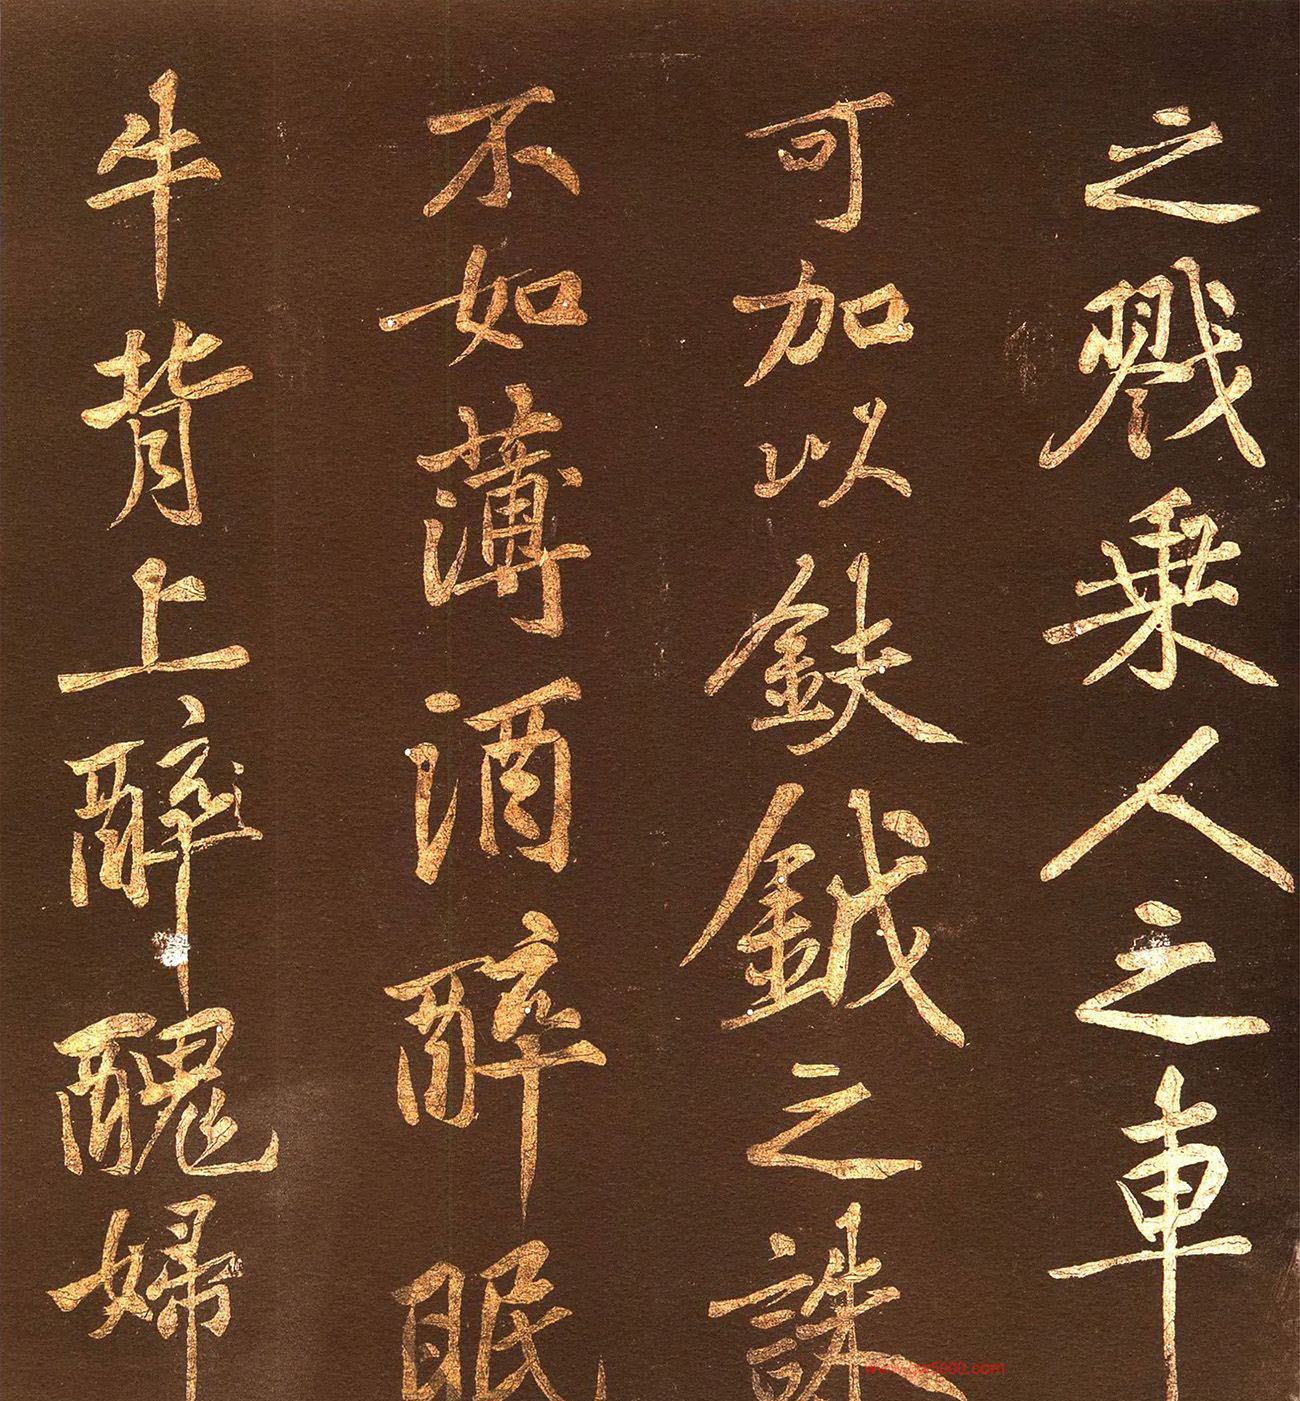 之戮乗人之車
可加以鈇鉞之誅
不如薄酒醉眠
牛背上醉醜婦
www.gw5000.com